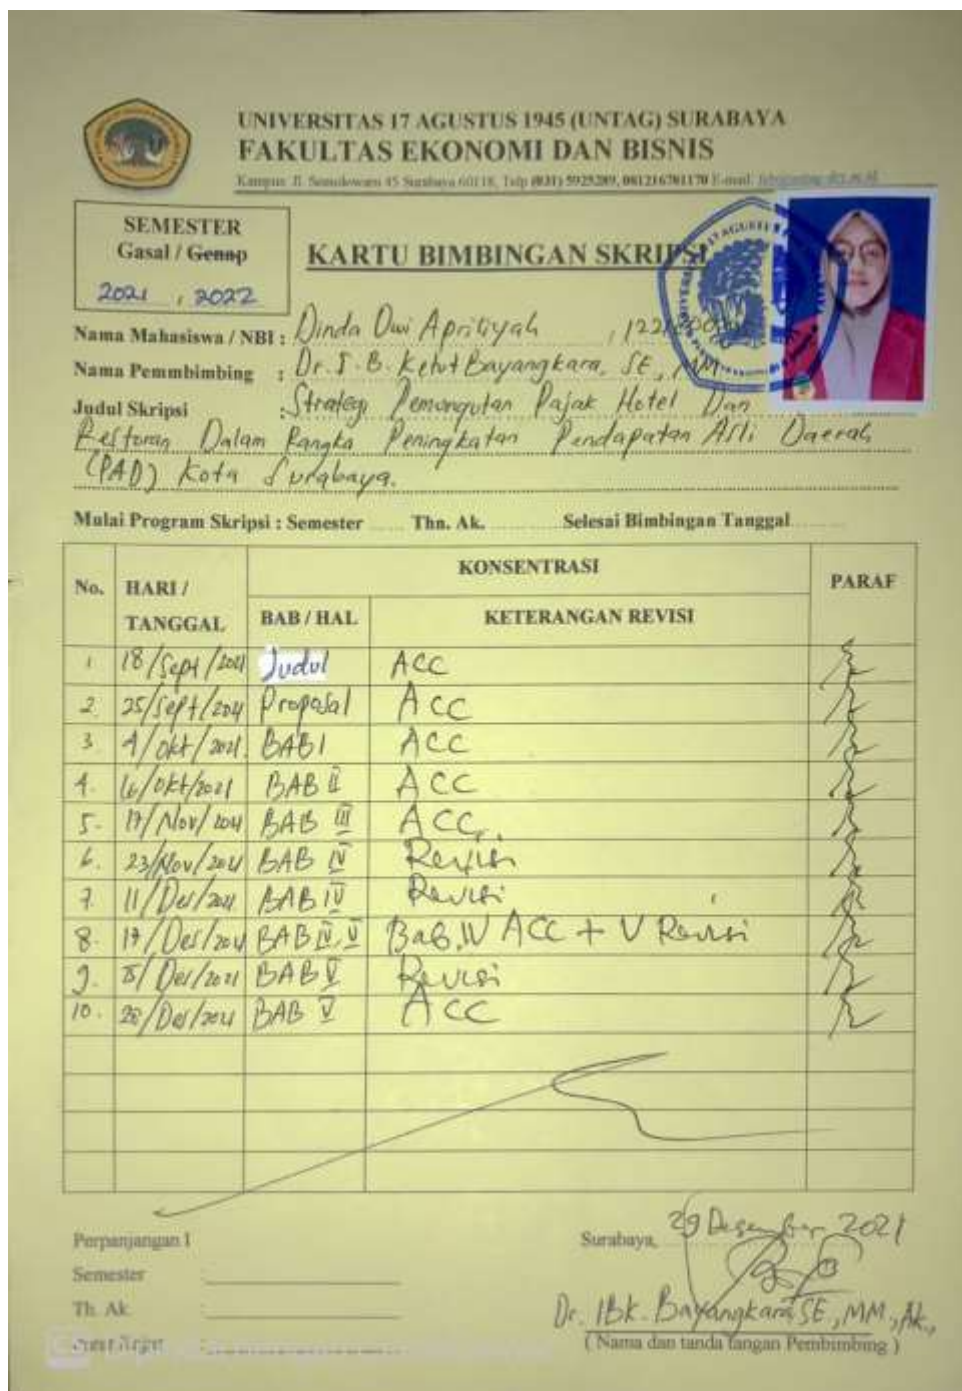 UNIVERSITAS 17 AGUSTUS 1945 (UNTAG) SURABAYA
FAKULTAS EKONOMI DAN BISNIS
Kampus: Jl. Semolowaru 45 Surabaya 60118, Telp (031) 5925289, 081216781170 E-mail:
SEMESTER
Gasal / Genap
2021 , 2022
KARTU BIMBINGAN SKRIPSI
Nama Mahasiswa / NBI : Dinda Dwi Apriliyah , 122
Nama Pemmbimbing : Dr. I. B. Ketut Bayangkara, SE, MM
Judul Skripsi : Strategi Pemungutan Pajak Hotel Dan
Restoran Dalam Rangka Peningkatan Pendapatan Asli Daerah
(PAD) Kota Surabaya.
Mulai Program Skripsi : Semester Thn. Ak. Selesai Bimbingan Tanggal
No. HARI / TANGGAL KONSENTRASI PARAF
BAB / HAL KETERANGAN REVISI
1 18/Sept/2021 Judul ACC
2. 25/Sept/2021 Proposal ACC
3. 4/Okt/2021 BAB I ACC
4. 16/Okt/2021 BAB II ACC
5. 17/Nov/2021 BAB III ACC
6. 23/Nov/2021 BAB IV Revisi
7. 11/Des/2021 BAB IV Revisi
8. 17/Des/2021 BAB IV, V Bab, IV ACC + V Revisi
9. /Des/2021 BAB V Revisi
10. 28/Des/2021 BAB V ACC
Perpanjangan I
Semester :
Th. Ak. :
Surabaya, 29 Desember 2021
Dr. IBK. Bayangkara, SE, MM., Ak.,
( Nama dan tanda tangan Pembimbing )